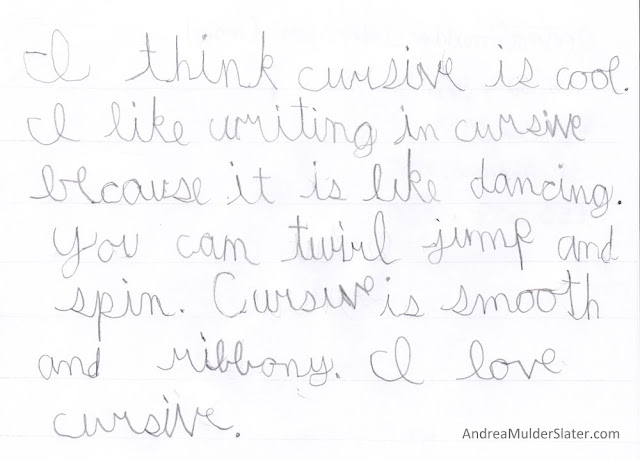 I think cursive is cool.
I like writing in cursive
because it is like dancing.
You can twirl jump and
spin. Cursive is smooth
and ribbony. I love
cursive.
AndreaMulderSlater.com